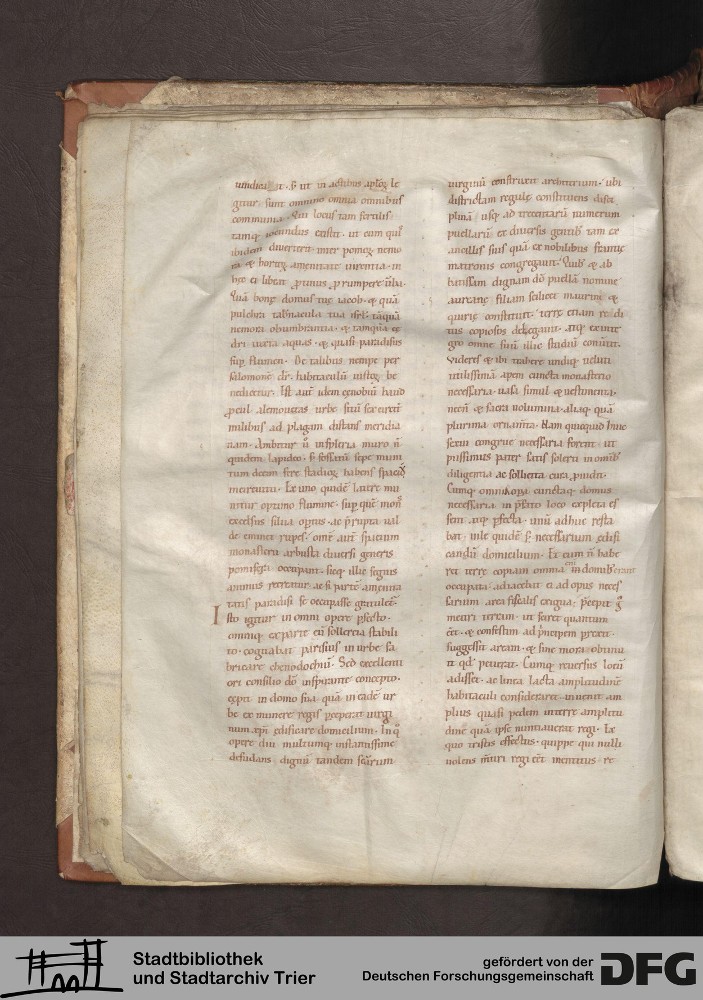 gitur sunt omnino omnia omnibus
communia. Qui locus tam fertilis
tamq; iocundus existit. ut eum qui
ibidem diverterit inter pomoꝝ nemo
ra & hortoꝝ amenitate virentia. in
hęc ei libeat ꝓtinus ꝓrumpere ũba.
Quā bonę domus tuę iacob. & quā
pulchra tab̅nacula tua isrl̅. tāquā
nemora obumbrantia. & tamquā ce
dri iuxta aquas. & quasi paradisus
sup̱ flumen. De talibus nempe per
salomonē dr̅. habitaculū iustoꝝ be
nedicetur. Est aut̅ idem cęnobiū haud
ꝓcul a lemouicas urbe sitū sex circit̅
milibus ad plagam distans meridia
nam. Ambitur ū inspleria muro n̅
quidem lapideo. s; fossatū sepe muni
tum decem fere stadioꝝ habens spaciū
in circuitu. Ex uno quidē latere mu
nitur optimo flumine. sup̱ quē mons
excelsus silua op̱tus. ac p̱rupta val
de eminet rupes. omē aut̅ spacium
monasterii arbusta diversi generis
pomifera occupant. sicq; illic segnis
animus recreatur ac si partē ameni
tatis paradisi se occupasse gratulet̅.
Isto igitur in omni opere p̱fecto.
omniq; ex parte cū sollercia stabili
to. cogitabat parisius in urbe fa
bricare xhenodochiū. Sed excellenti
ori consilio dō inspirante concepto.
cępit in domo sua quā in eadē ur
be ex munere regis pceperat virgi
num xp̅i ędificare domicilium. In q̊
opere diu multumq; instantissime
desudans dignū tandem sc̅arum
virginū construxit architerium. ubi
districtam regulę constituens disci
plinā usq; ad trecentarū numerum
puellarū ex diversis gentib; tam ex
ancillis suis quā ex nobilibus francię
matronis congregavit. Quib; & ab
batissam dignam dō puellā nomine
aureanę filiam scilicet maurini &
quirię constituit. terrę etiam re di
tus copiosos delegavit. atq; ex inte
gro omne suū illic studiū con̅tit.
Videres & ibi trahere undiq; veluti
utilissimā apem cuncta monasterio
necessaria. vasa simul & vestimenta.
necn̅ & sacra volumina. aliaq; quā
plurima ornam̅ta. Nam quicquid huic
sexui congrue necessaria forent. ut
piissimus pater satis solers in omib;
diligentia ac sollicita cura ꝓvidit.
Cumq; omni ex parte cunctaq; domus
necessaria in p̱fato loco expleta es
sent atq; p̱fecta. unū adhuc resta
bat. ille quidē s; necessarium ędifi
candū domicilium. Et cum n̅ habe
ret terrę copiam omnia eni̅ domib; erant
occupata. adiacebat ei ad opus neces
sarium area fiscalis exigua; p̱cepit g̊
metiri terram. ut sciret quantum
eet̅. & confestim ad p̱ncipem ꝓrexit.
suggessit aream. & sine mora obtinu
it qd̅ petivit. Cumq; reversus locū
adisset. ac linea lacta amplitudinē
habitaculi consideraret. invenit am
plius quasi pedem in terrę amplitu
dine quā ipse nuntiaverat regi. Ex
quo tristis effectus. quippe qui nulli
volens m̅tiri regi eēt mentitus. re
Stadtbibliothek
und Stadtarchiv Trier
gefördert von der
Deutschen Forschungsgemeinschaft
DFG